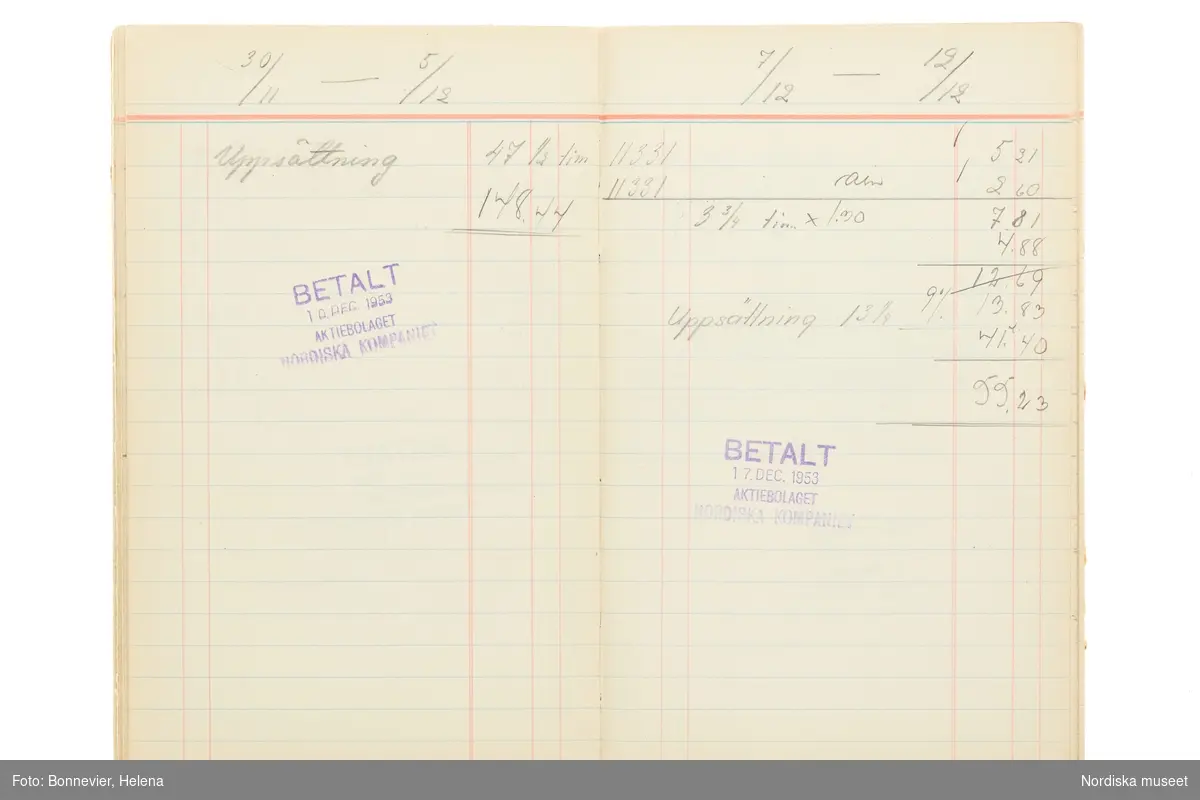 30/11 — 5/12
Uppsättning 47 1/2 tim
148.44
BETALT
10. DEC. 1953
AKTIEBOLAGET
NORDISKA KOMPANIET
7/12 — 12/12
11331 5 21
11331 2 60
3 3/4 tim. x 1.30 7.81
4.88
12.69
9% 13.83
Uppsättning 13 1/4
41.40
55.23
BETALT
17. DEC. 1953
AKTIEBOLAGET
NORDISKA KOMPANIET
Foto: Bonnevier, Helena
Nordiska museet